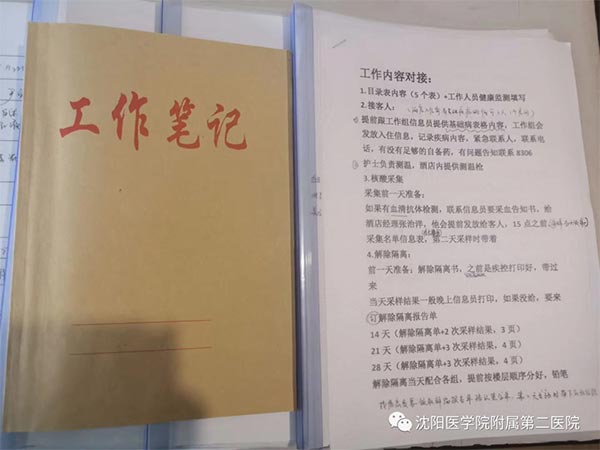 工作笔记
工作内容对接：
1.目录表内容（5 个表）+工作人员健康监测填写
2.接客人：
提前跟工作组信息员提供基础病表格内容，工作组会
发放入住信息，记录疾病内容，紧急联系人，联系电
话，有没有足够的自备药，有问题告知联系 8306
护士负责测温，酒店内提供测温枪
3.核酸采集
采集前一天准备：
如果有血清抗体检测，联系信息员要采血告知书，给
酒店经理张治洋，他会提前发放给客人，15 点之前
采集名单信息表，第二天采样时带着
4.解除隔离：
前一天准备：解除隔离书，之前是疾控打印好，带过
来
当天采样结果一般晚上信息员打印，如果没给，要来
订解除隔离报告单
14 天（解除隔离单+2 次采样结果，3 页）
21 天（解除隔离单+3 次采样结果，4 页）
28 天（解除隔离单+3 次采样结果，4 页）
解除隔离当天配合各组，提前按楼层顺序分好，铅笔
沈阳医学院附属第二医院